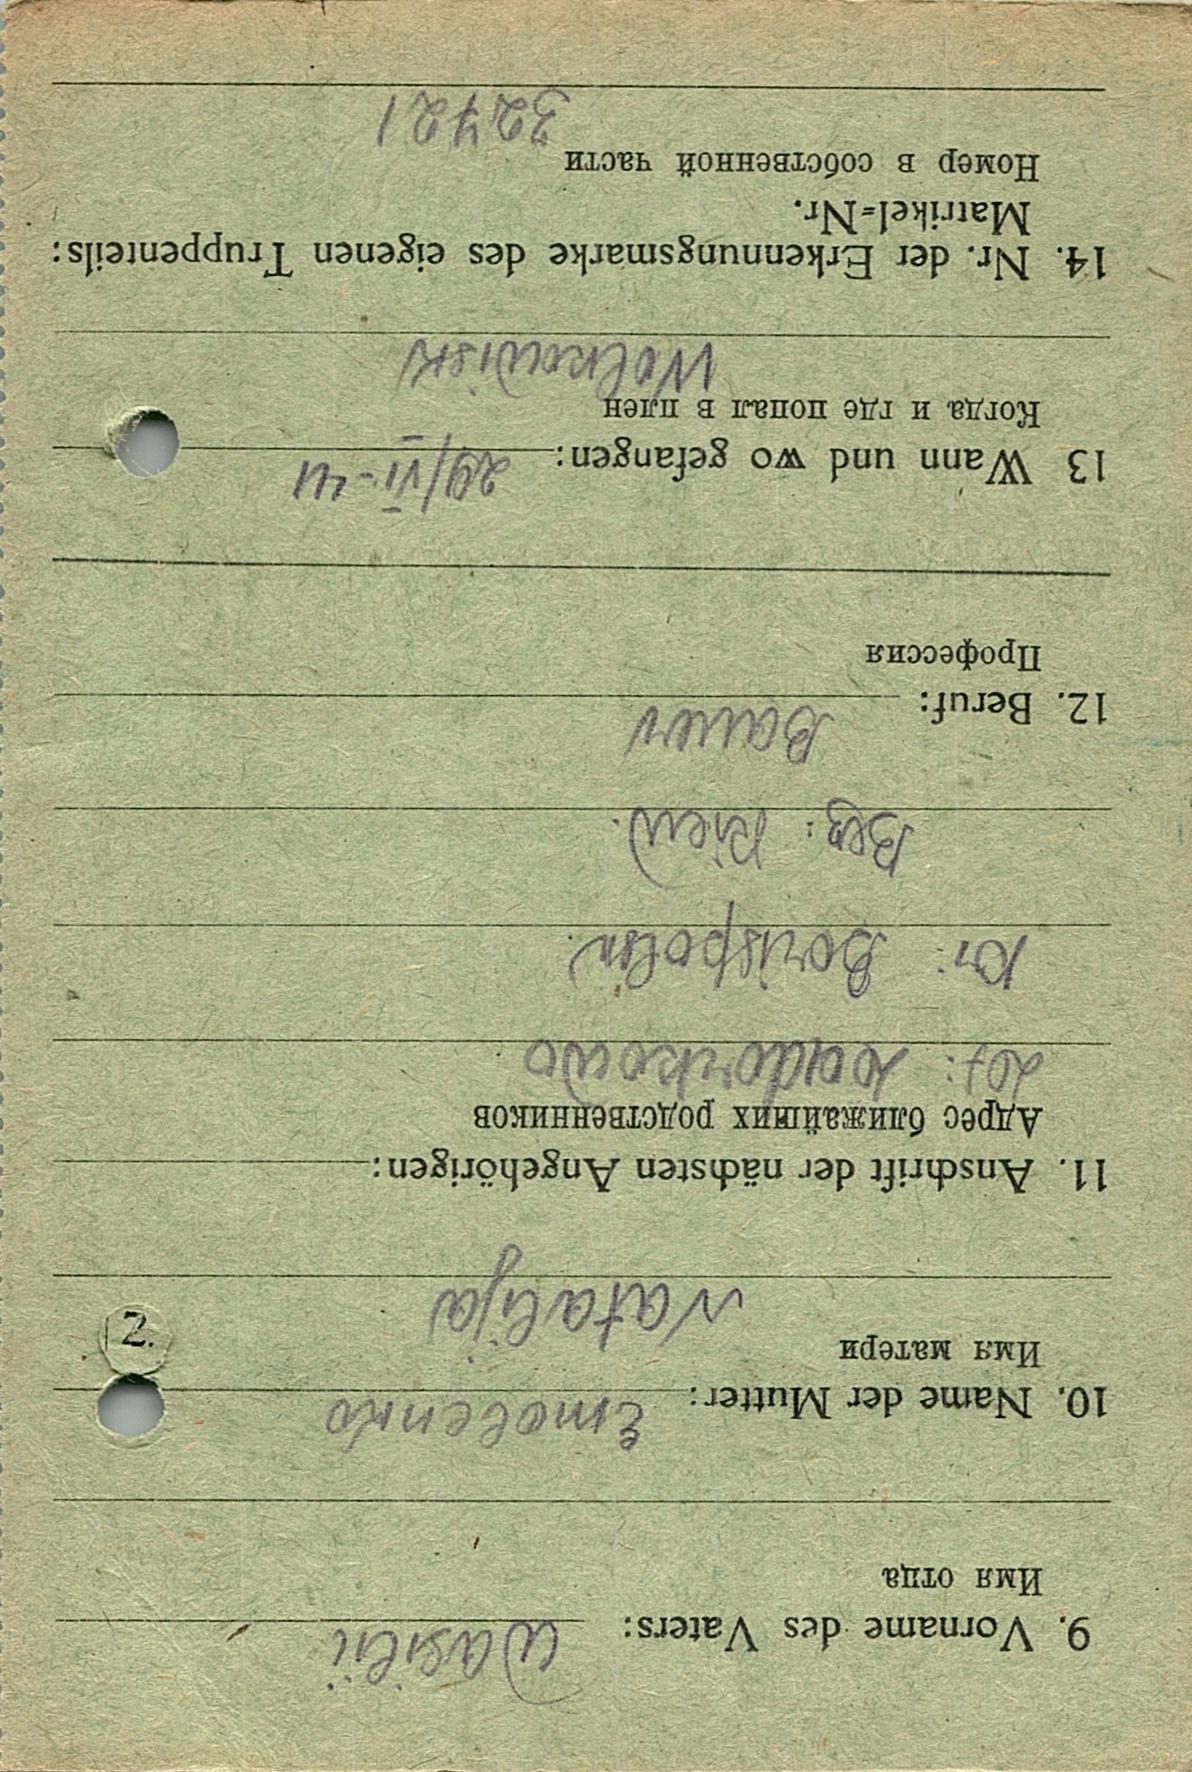 9. Vorname des Vaters: Wasilii
Имя отца
10. Name der Mutter: Emelenko
Имя матери
Natalija
2.
11. Anschrift der nächsten Angehörigen:
Адрес ближайших родственников
Kr: Borispolsk.
Bez: Kiew.
12. Beruf: Bauer
Профессия
13 Wann und wo gefangen: 29/VI-41
Когда и где попал в плен
Wolkowisk
14. Nr. der Erkennungsmarke des eigenen Truppenteils:
Matrikel=Nr.
Номер в собственной части
32721